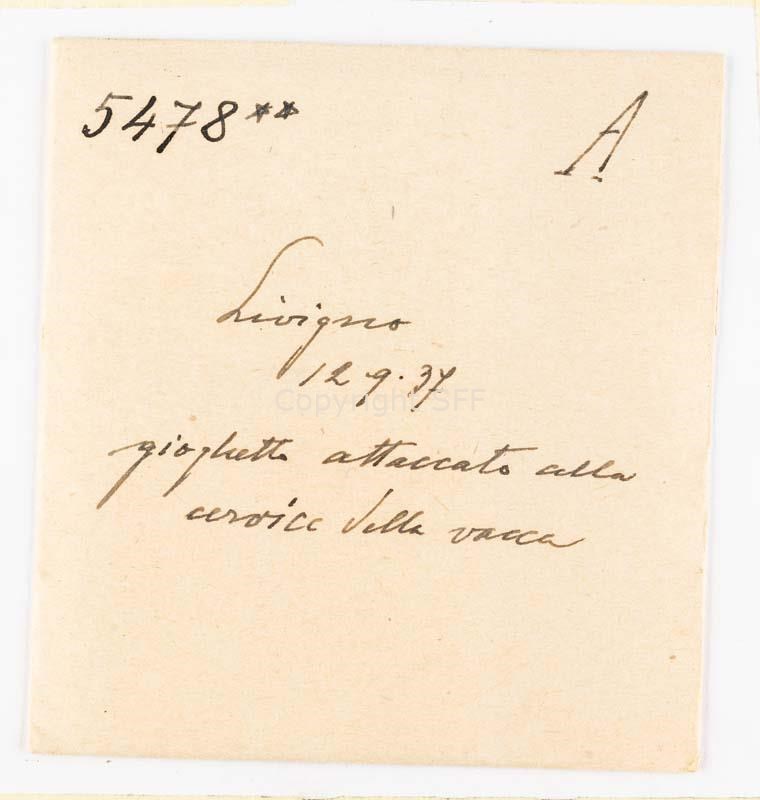 5478** A
Livigno
12.9.37
Copyright SFF
gioghetto attaccato alla
cervice della vacca